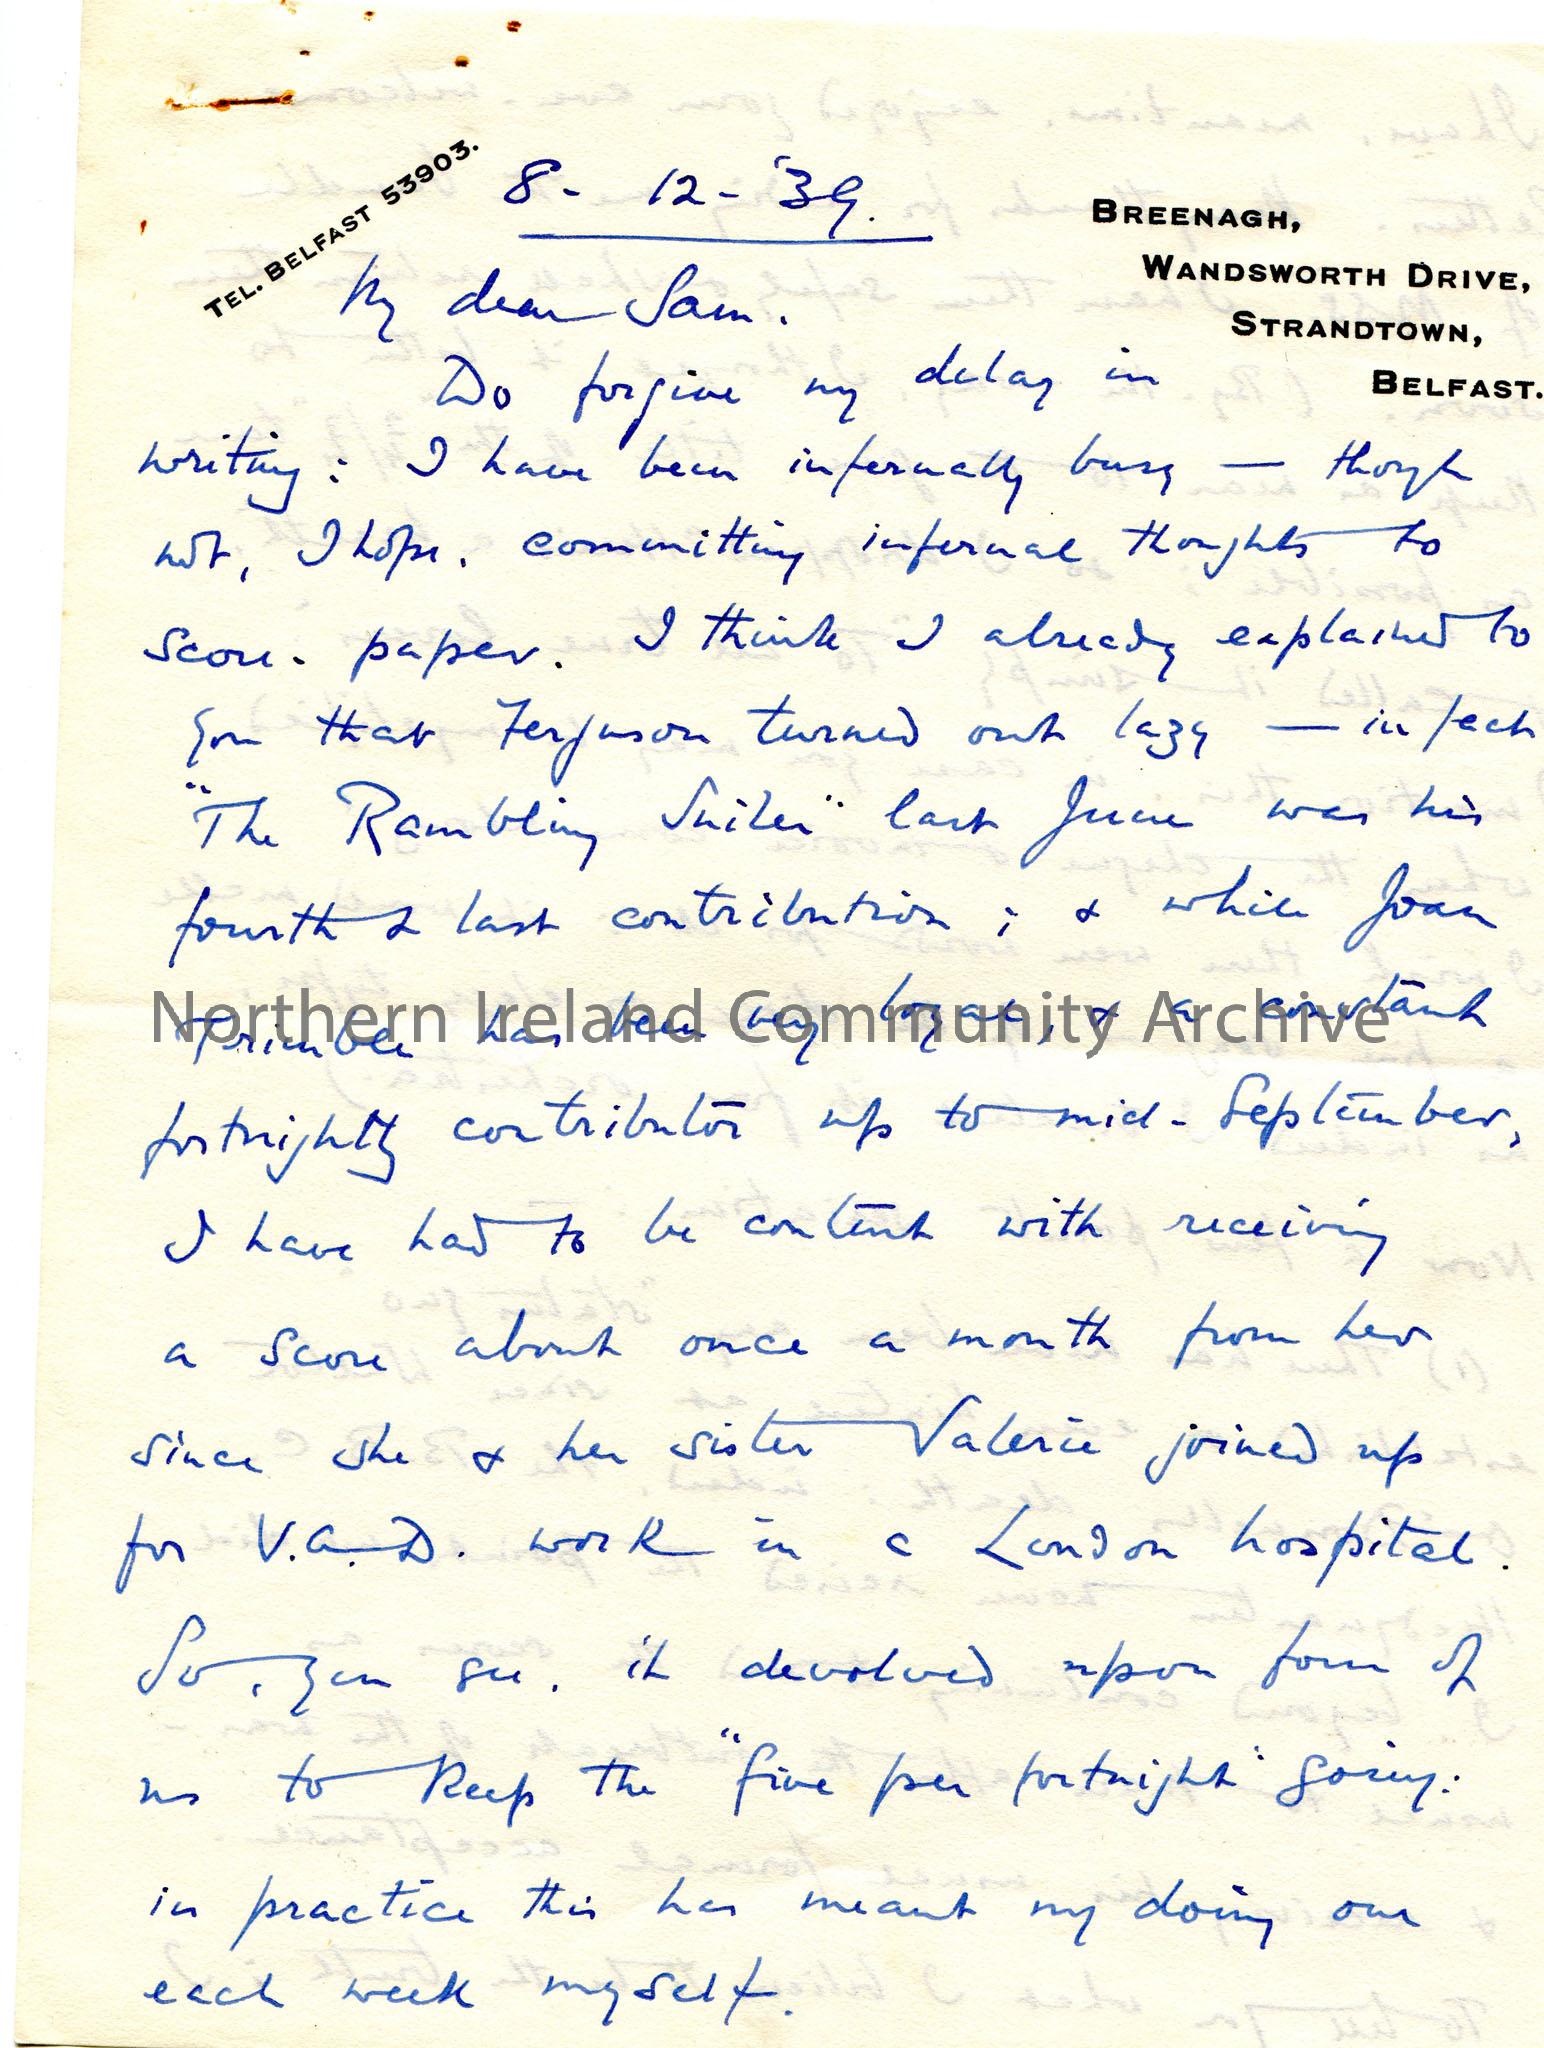 TEL. BELFAST 53903.
8 - 12 - '39.
BREENAGH,
WANDSWORTH DRIVE,
STRANDTOWN,
BELFAST.
My dear Sam.
Do forgive my delay in
writing: I have been infernally busy — though
not, I hope, committing infernal thoughts to
score-paper. I think I already explained to
you that Ferguson turned out lazy — in fact
"The Rambling Suiler" last June was his
fourth & last contribution; & while Joan
Trimble has been very loyal, & a constant
Northern Ireland Community Archive
fortnightly contributor up to mid-September,
I have had to be content with receiving
a score about once a month from her
since she & her sister Valerie joined up
for V.A.D. work in a London hospital.
So, you see, it devolved upon four of
us to keep the "five per fortnight" going:
in practice this has meant my doing one
each week myself.